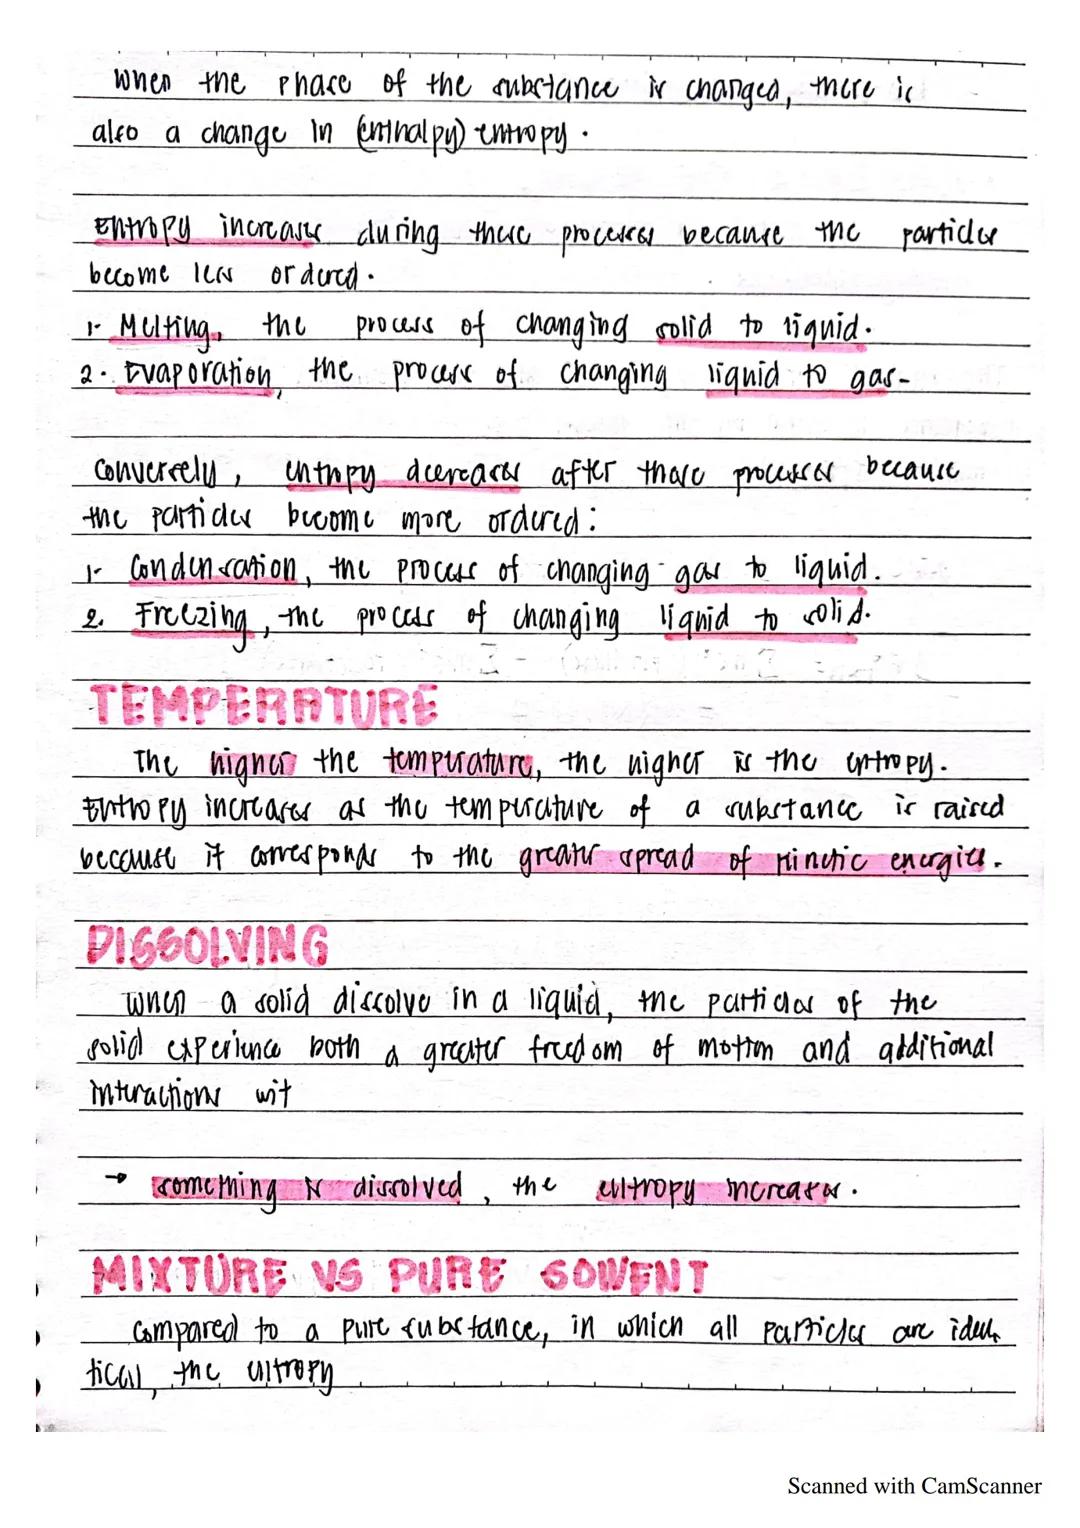 When the phase of the substance is changed, there is
also a change in (enthalpy) entropy.
Entropy increases during these processes because the particles
become less ordered.
1. Melting, the process of changing solid to liquid.
2. Evaporation, the process of changing liquid to gas.
Conversely, entropy decreases after these processes because
the particles become more ordered:
1. Condensation, the process of changing gas to liquid.
2. Freezing, the process of changing liquid to solid.
TEMPERATURE
The higher the temperature, the higher is the entropy.
Entropy increases as the temperature of a substance is raised
because it corresponds to the greater spread of kinetic energies.
DISSOLVING
When a solid dissolve in a liquid, the particles of the
solid experience both a greater freedom of motion and additional
interactions wit
→ something is dissolved, the entropy increases.
MIXTURE VS PURE SOLVENT
Compared to a pure substance, in which all particles are iden
tical, the entropy
Scanned with CamScanner